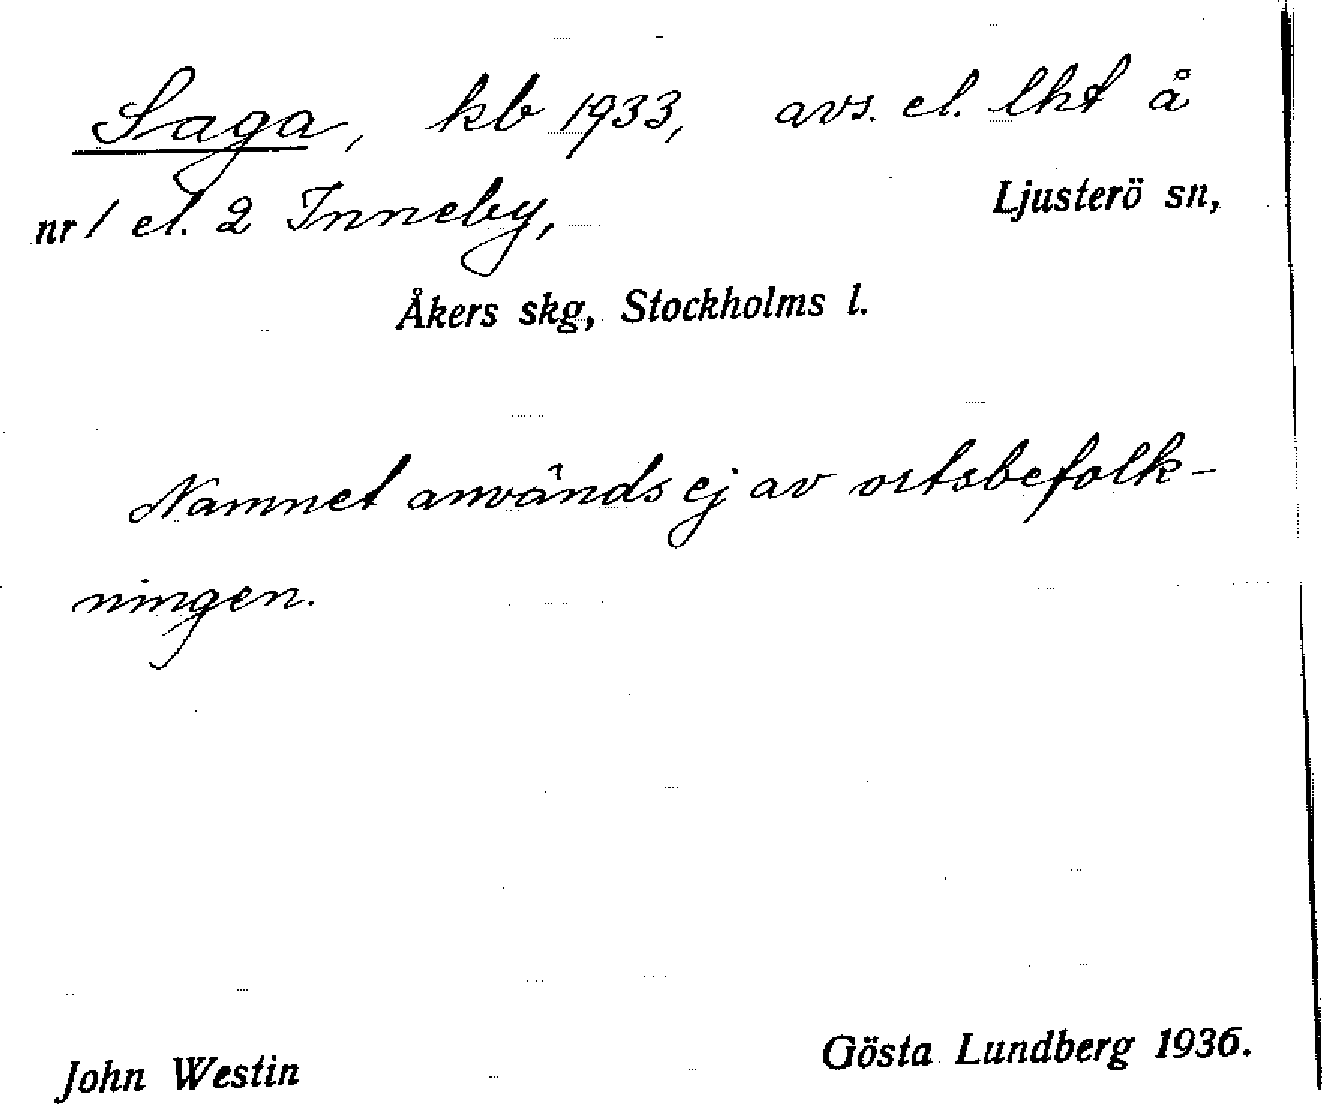 Saga, kb 1933, avs. el. lht å
nr 1 el. 2 Inneby, Ljusterö sn,
Åkers skg, Stockholms l.
Namnet används ej av ortsbefolk-
ningen.
John Westin Gösta Lundberg 1936.